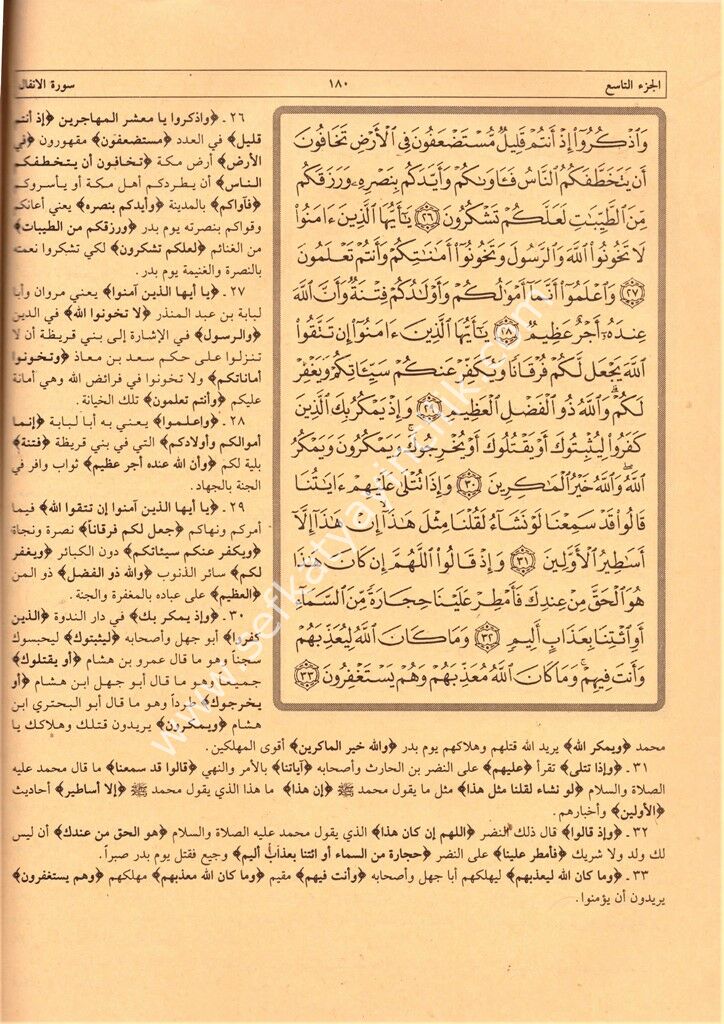 الجزء التاسع
١٨٠
سورة الانفال
وَاذْكُرُوٓا إِذْ أَنتُمْ قَلِيلٌ مُّسْتَضْعَفُونَ فِى الْأَرْضِ تَخَافُونَ
أَن يَتَخَطَّفَكُمُ النَّاسُ فَـَٔاوَىٰكُمْ وَأَيَّدَكُم بِنَصْرِهِۦ وَرَزَقَكُم
مِّنَ الطَّيِّبَـٰتِ لَعَلَّكُمْ تَشْكُرُونَ ٢٦ يَـٰٓأَيُّهَا الَّذِينَ ءَامَنُوا
لَا تَخُونُوا اللَّهَ وَالرَّسُولَ وَتَخُونُوٓا أَمَـٰنَـٰتِكُمْ وَأَنتُمْ تَعْلَمُونَ
٢٧ وَاعْلَمُوٓا أَنَّمَآ أَمْوَٰلُكُمْ وَأَوْلَـٰدُكُمْ فِتْنَةٌ وَأَنَّ اللَّهَ
عِندَهُۥٓ أَجْرٌ عَظِيمٌ ٢٨ يَـٰٓأَيُّهَا الَّذِينَ ءَامَنُوٓا إِن تَتَّقُوا
اللَّهَ يَجْعَل لَّكُمْ فُرْقَانًا وَيُكَفِّرْ عَنكُمْ سَيِّـَٔاتِكُمْ وَيَغْفِرْ
لَكُمْ وَاللَّهُ ذُو الْفَضْلِ الْعَظِيمِ ٢٩ وَإِذْ يَمْكُرُ بِكَ الَّذِينَ
كَفَرُوا لِيُثْبِتُوكَ أَوْ يَقْتُلُوكَ أَوْ يُخْرِجُوكَ وَيَمْكُرُونَ وَيَمْكُرُ
اللَّهُ وَاللَّهُ خَيْرُ الْمَـٰكِرِينَ ٣٠ وَإِذَا تُتْلَىٰ عَلَيْهِمْ ءَايَـٰتُنَا
قَالُوا قَدْ سَمِعْنَا لَوْ نَشَآءُ لَقُلْنَا مِثْلَ هَـٰذَآ إِنْ هَـٰذَآ إِلَّآ
أَسَـٰطِيرُ الْأَوَّلِينَ ٣١ وَإِذْ قَالُوا اللَّهُمَّ إِن كَانَ هَـٰذَا
هُوَ الْحَقَّ مِنْ عِندِكَ فَأَمْطِرْ عَلَيْنَا حِجَارَةً مِّنَ السَّمَآءِ
أَوِ ائْتِنَا بِعَذَابٍ أَلِيمٍ ٣٢ وَمَا كَانَ اللَّهُ لِيُعَذِّبَهُمْ
وَأَنتَ فِيهِمْ وَمَا كَانَ اللَّهُ مُعَذِّبَهُمْ وَهُمْ يَسْتَغْفِرُونَ ٣٣
٢٦ ـ ﴿واذكروا يا معشر المهاجرين ﴿إذ أنتم
قليل﴾ في العدد ﴿مستضعفون﴾ مقهورون ﴿في
الأرض﴾ أرض مكة ﴿تخافون أن يتخطفكم
الناس﴾ أن يطردكم أهل مكة أو يأسروكم
﴿فآواكم﴾ بالمدينة ﴿وأيدكم بنصره﴾ يعني أعانكم
وقواكم بنصرته يوم بدر ﴿ورزقكم من الطيبات﴾
من الغنائم ﴿لعلكم تشكرون﴾ لكي تشكروا نعمته
بالنصرة والغنيمة يوم بدر.
٢٧ ـ ﴿يا أيها الذين آمنوا﴾ يعني مروان وأبا
لبابة بن عبد المنذر ﴿لا تخونوا الله﴾ في الدين
﴿والرسول﴾ في الإشارة إلى بني قريظة أن لا
تنزلوا على حكم سعد بن معاذ ﴿وتخونوا
أماناتكم﴾ ولا تخونوا في فرائض الله وهي أمانة
عليكم ﴿وأنتم تعلمون﴾ تلك الخيانة.
٢٨ ـ ﴿واعلموا﴾ يعني به أبا لبابة ﴿إنما
أموالكم وأولادكم﴾ التي في بني قريظة ﴿فتنة﴾
بلية لكم ﴿وأن الله عنده أجر عظيم﴾ ثواب وافر في
الجنة بالجهاد.
٢٩ ـ ﴿يا أيها الذين آمنوا إن تتقوا الله﴾ فيما
أمركم ونهاكم ﴿جعل لكم فرقاناً﴾ نصرة ونجاة
﴿ويكفر عنكم سيئاتكم﴾ دون الكبائر ﴿ويغفر
لكم﴾ سائر الذنوب ﴿والله ذو الفضل﴾ ذو المن
﴿العظيم﴾ على عباده بالمغفرة والجنة.
٣٠ ـ ﴿وإذ يمكر بك﴾ في دار الندوة ﴿الذين
كفروا﴾ أبو جهل وأصحابه ﴿ليثبتوك﴾ ليحبسوك
سجناً وهو ما قال عمرو بن هشام ﴿أو يقتلوك﴾
جميعاً وهو ما قال أبو جهل ابن هشام ﴿أو
يخرجوك﴾ طرداً وهو ما قال أبو البحتري ابن
هشام ﴿ويمكرون﴾ يريدون قتلك وهلاكك يا
محمد ﴿ويمكر الله﴾ يريد الله قتلهم وهلاكهم يوم بدر ﴿والله خير الماكرين﴾ أقوى المهلكين.
٣١ ـ ﴿وإذا تتلى﴾ تقرأ ﴿عليهم﴾ على النضر بن الحارث وأصحابه ﴿آياتنا﴾ بالأمر والنهي ﴿قالوا قد سمعنا﴾ ما قال محمد عليه
الصلاة والسلام ﴿لو نشاء لقلنا مثل هذا﴾ مثل ما يقول محمد ﷺ ﴿إن هذا﴾ ما هذا الذي يقول محمد ﷺ ﴿إلا أساطير﴾ أحاديث
﴿الأولين﴾ وأخبارهم.
٣٢ ـ ﴿وإذ قالوا﴾ قال ذلك النضر ﴿اللهم إن كان هذا﴾ الذي يقول محمد عليه الصلاة والسلام ﴿هو الحق من عندك﴾ أن ليس
لك ولد ولا شريك ﴿فأمطر علينا﴾ على النضر ﴿حجارة من السماء أو ائتنا بعذاب أليم﴾ وجيع فقتل يوم بدر صبراً.
٣٣ ـ ﴿وما كان الله ليعذبهم﴾ ليهلكهم أبا جهل وأصحابه ﴿وأنت فيهم﴾ مقيم ﴿وما كان الله معذبهم﴾ مهلكهم ﴿وهم يستغفرون﴾
يريدون أن يؤمنوا.
www.sefkatyayincilik.com